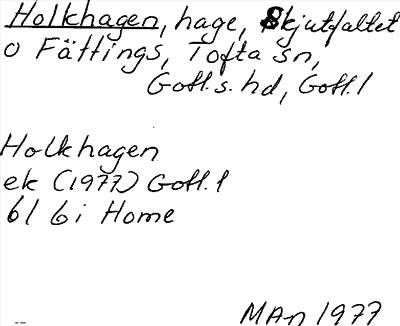 Holkhagen, hage, Skjutfältet
O Fättings, Tofta sn,
Gotl. s. hd, Gotl. l
Holkhagen
ek (1977) Gotl. l
6I 6i Home
MAn 1977